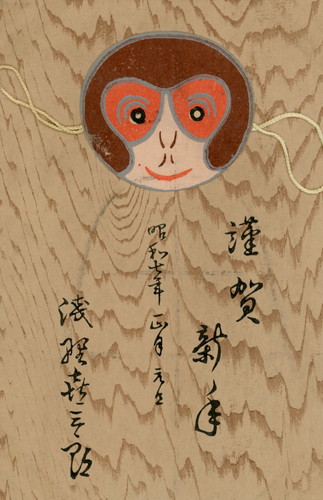 謹賀新年
昭和七年 正月元旦
淺野喜三郎